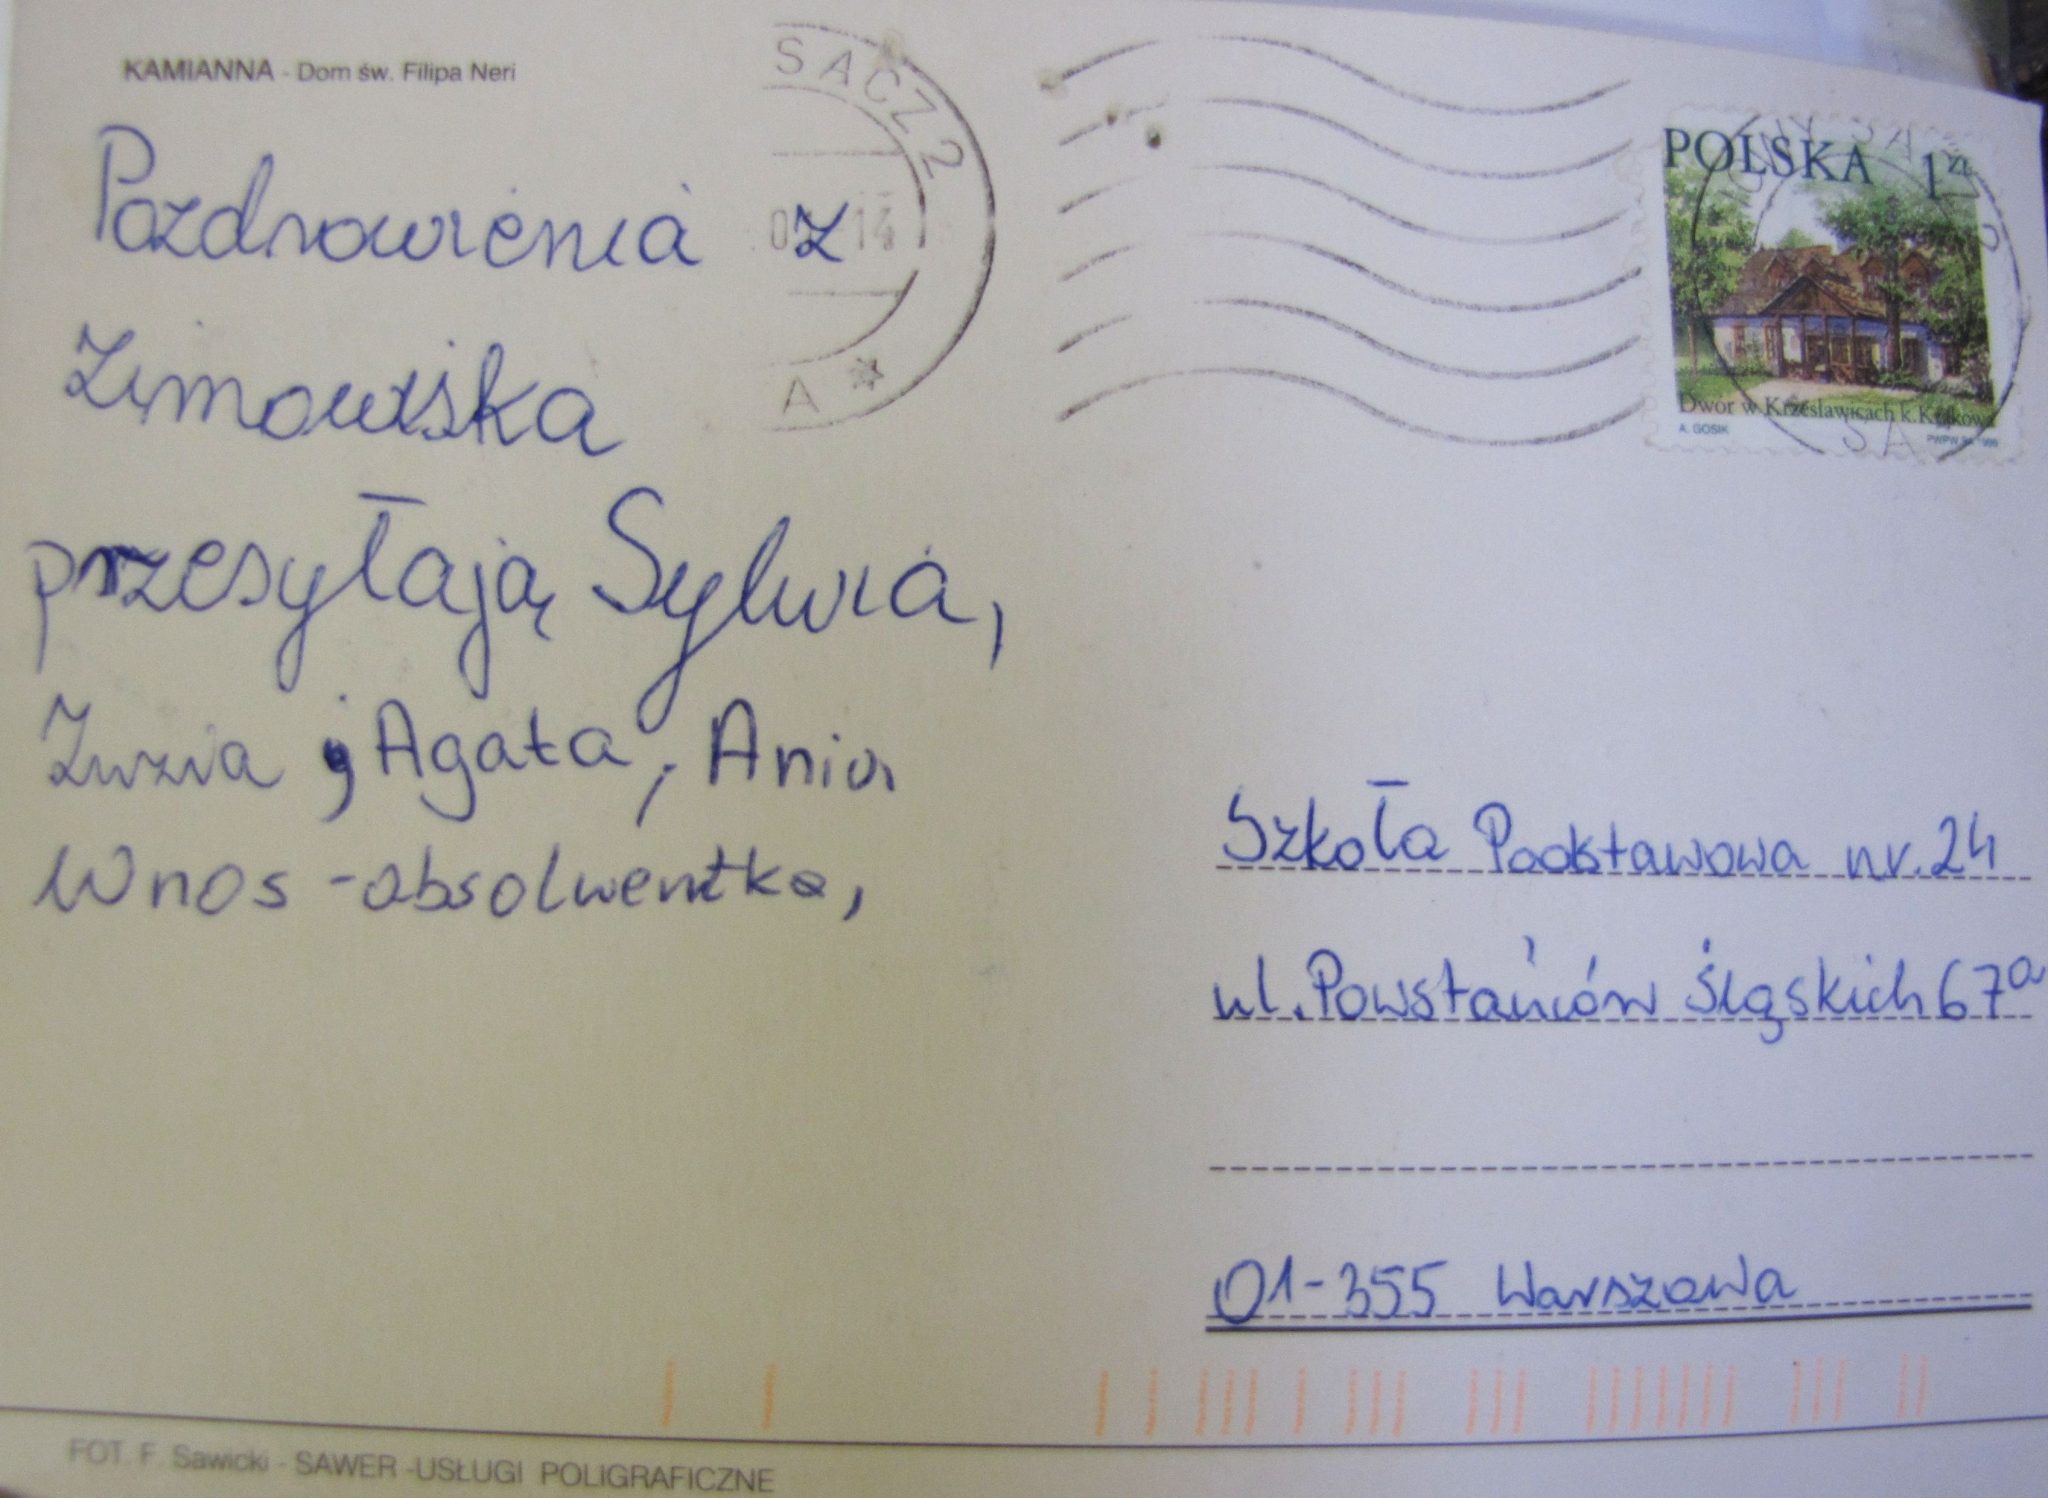 KAMIANNA - Dom św. Filipa Neri
SĄCZ 2
14
A *
POLSKA 1 ZŁ
Dwór w Krzesławicach k. Krakowa
A. GOSIK
PWPW 1999
Pozdrowienia z
Zimowiska
przesyłają Sylwia,
Zuzia, Agata, Ania
Wnos - absolwentka,
Szkoła Podstawowa nr. 24
ul. Powstańców Śląskich 67a
01-355 Warszawa
FOT. F. Sawicki - SAWER - USŁUGI POLIGRAFICZNE